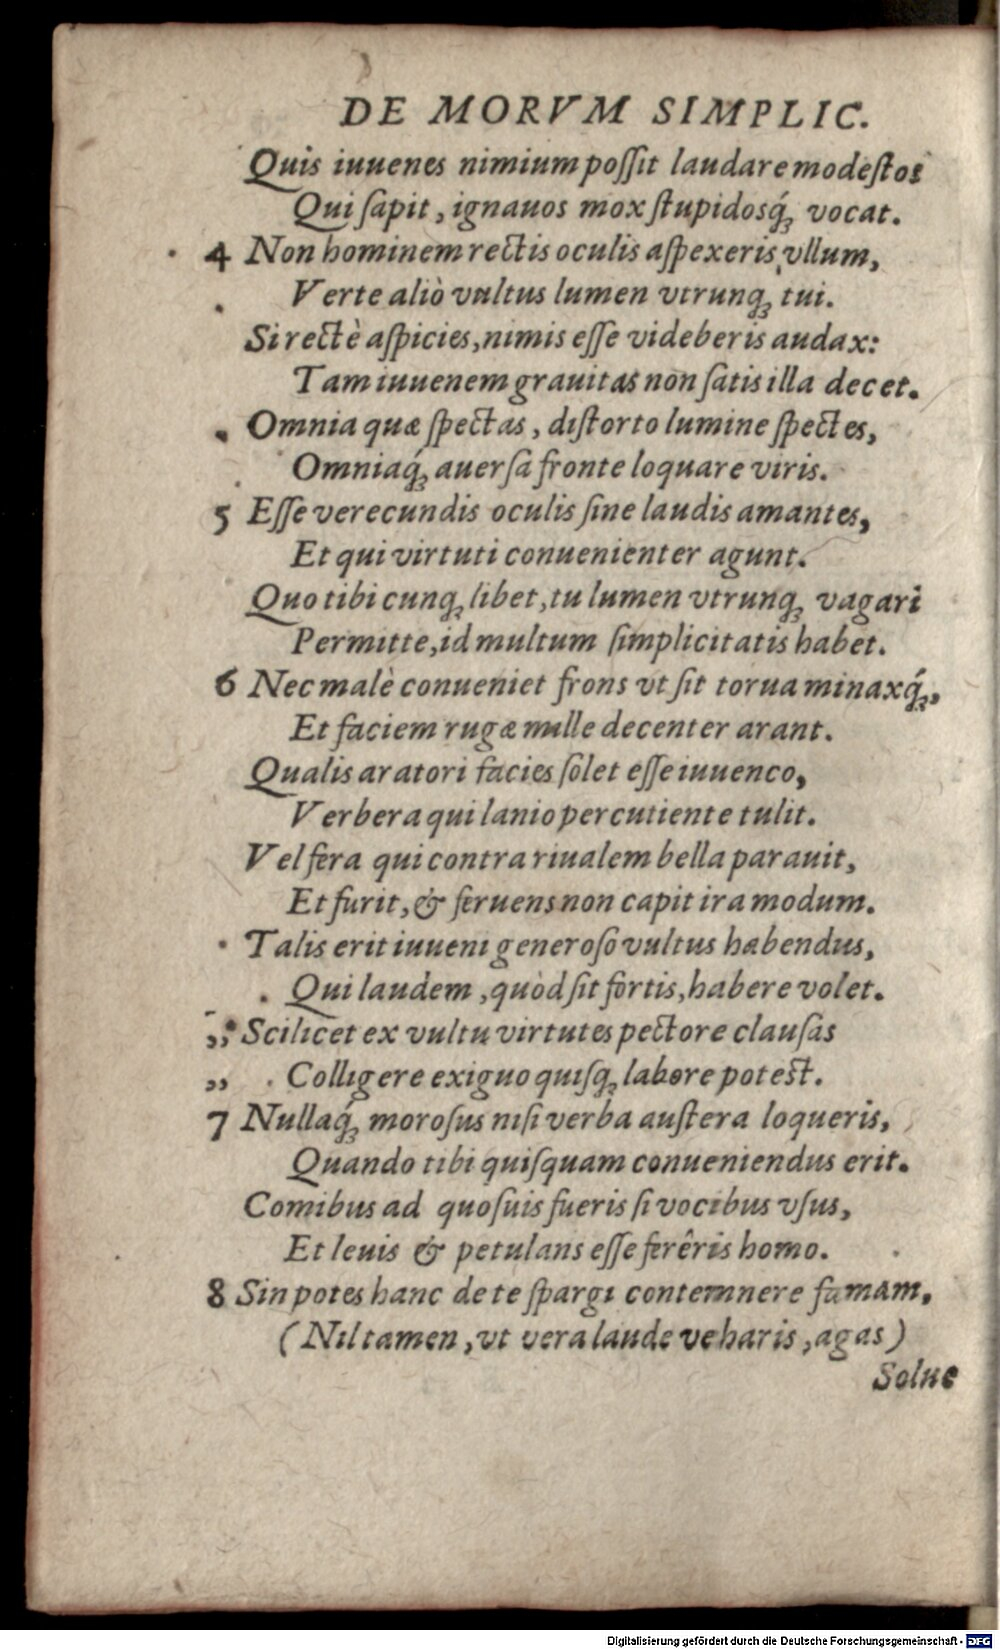 DE MORVM SIMPLIC.
Quis iuuenes nimium poſſit laudare modeſtos
Qui ſapit, ignauos mox ſtupidosq́; vocat.
4 Non hominem rectis oculis aſpexeris vllum,
Verte aliò vultus lumen vtrunq; tui.
Si rectè aſpicies, nimis eſſe videberis audax:
Tam iuuenem grauitas non ſatis illa decet.
Omnia quæ ſpectas, diſtorto lumine ſpectes,
Omniaq́; auerſa fronte loquare viris.
5 Eſſe verecundis oculis ſine laudis amantes,
Et qui virtuti conuenienter agunt.
Quo tibi cunq; libet, tu lumen vtrunq; vagari
Permitte, id multum ſimplicitatis habet.
6 Nec malè conueniet frons vt ſit torua minaxq́;,
Et faciem rugæ mille decenter arant.
Qualis aratori facies ſolet eſſe iuuenco,
Verbera qui lanio percutiente tulit.
Vel fera qui contra riualem bella parauit,
Et furit, & feruens non capit ira modum.
Talis erit iuueni generoſo vultus habendus,
Qui laudem, quòd ſit fortis, habere volet.
„ Scilicet ex vultu virtutes pectore clauſas
„ Colligere exiguo quiſq; labore poteſt.
7 Nullaq́; moroſus niſi verba auſtera loqueris,
Quando tibi quiſquam conueniendus erit.
Comibus ad quoſuis fueris ſi vocibus vſus,
Et leuis & petulans eſſe ferêris homo.
8 Sin potes hanc de te ſpargi contemnere famam,
(Nil tamen, vt vera laude veharis, agas)
Solue
Digitalisierung gefördert durch die Deutsche Forschungsgemeinschaft - DFG